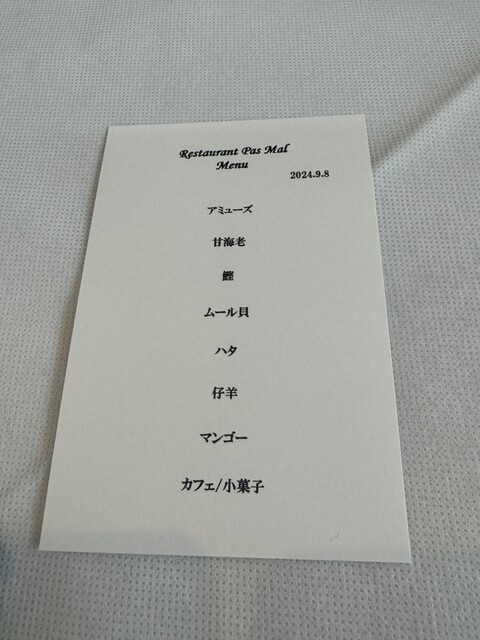 Restaurant Pas Mal
Menu
2024.9.8
アミューズ
甘海老
鰹
ムール貝
ハタ
仔羊
マンゴー
カフェ/小菓子